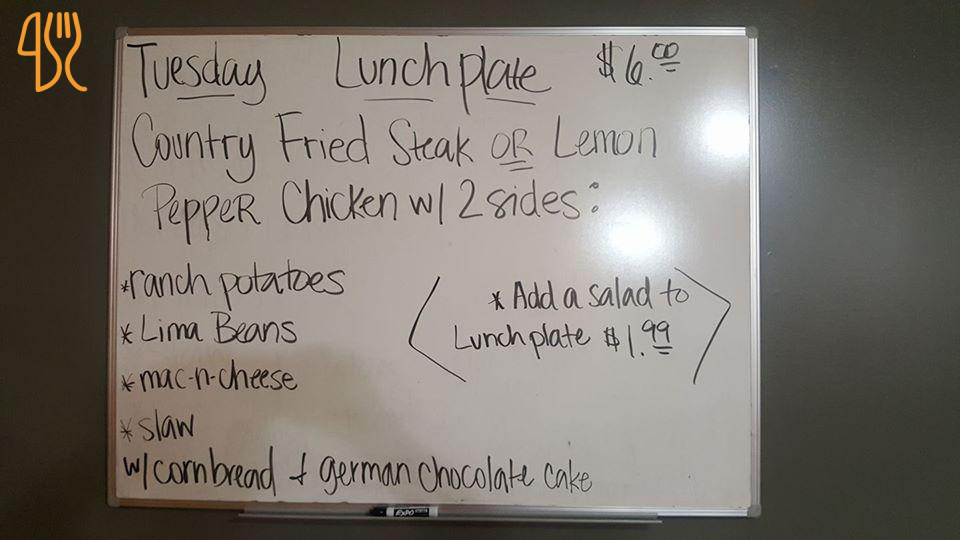 Tuesday Lunch plate $6.00
Country Fried Steak OR Lemon
Pepper Chicken w/ 2 sides:
*ranch potatoes
* Lima Beans
* mac-n-cheese
* slaw
w/ cornbread + german chocolate cake
* Add a salad to
Lunch plate $1.99
EXPO